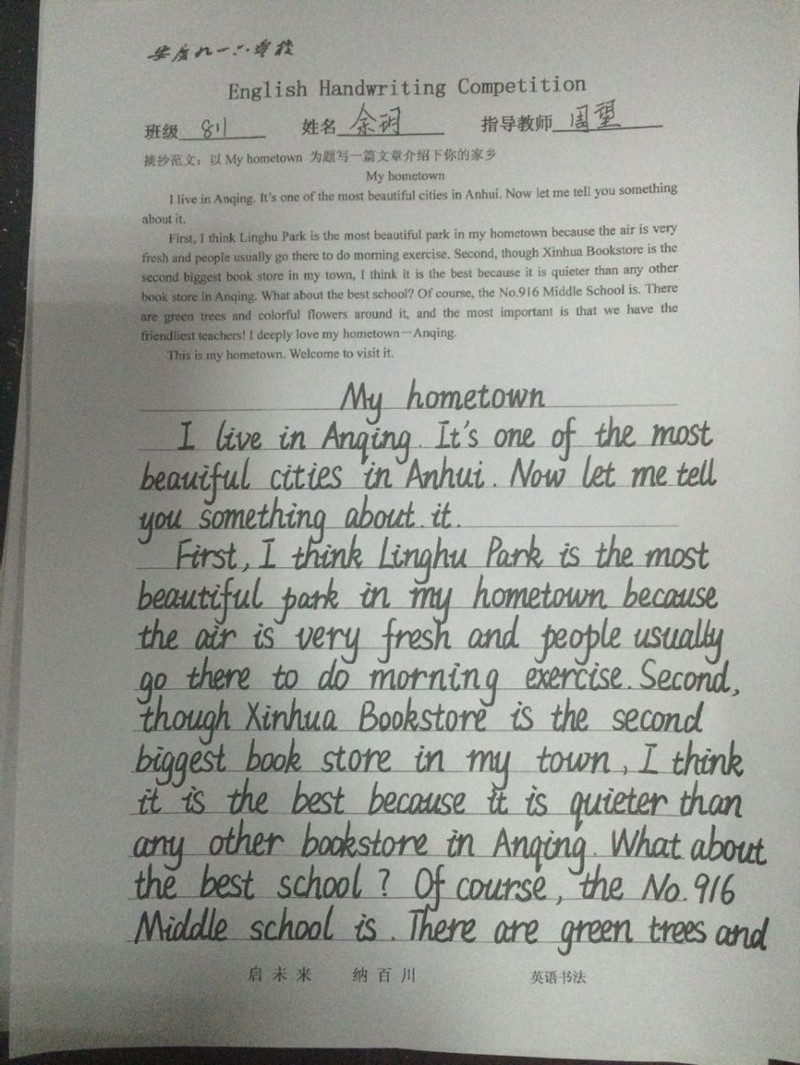 安庆九一六学校
English Handwriting Competition
班级 811 姓名 余玥 指导教师 周望
摘抄范文：以 My hometown 为题写一篇文章介绍下你的家乡
My hometown
I live in Anqing. It's one of the most beautiful cities in Anhui. Now let me tell you something
about it.
First, I think Linghu Park is the most beautiful park in my hometown because the air is very
fresh and people usually go there to do morning exercise. Second, though Xinhua Bookstore is the
second biggest book store in my town, I think it is the best because it is quieter than any other
book store in Anqing. What about the best school? Of course, the No.916 Middle School is. There
are green trees and colorful flowers around it, and the most important is that we have the
friendliest teachers! I deeply love my hometown—Anqing.
This is my hometown. Welcome to visit it.
My hometown
I live in Anqing. It's one of the most
beauiful cities in Anhui. Now let me tell
you something about it.
First, I think Linghu Park is the most
beautiful park in my hometown because
the air is very fresh and people usually
go there to do morning exercise. Second,
though Xinhua Bookstore is the second
biggest book store in my town, I think
it is the best because it is quieter than
any other bookstore in Anqing. What about
the best school? Of course, the No.916
Middle school is. There are green trees and
启未来 纳百川 英语书法